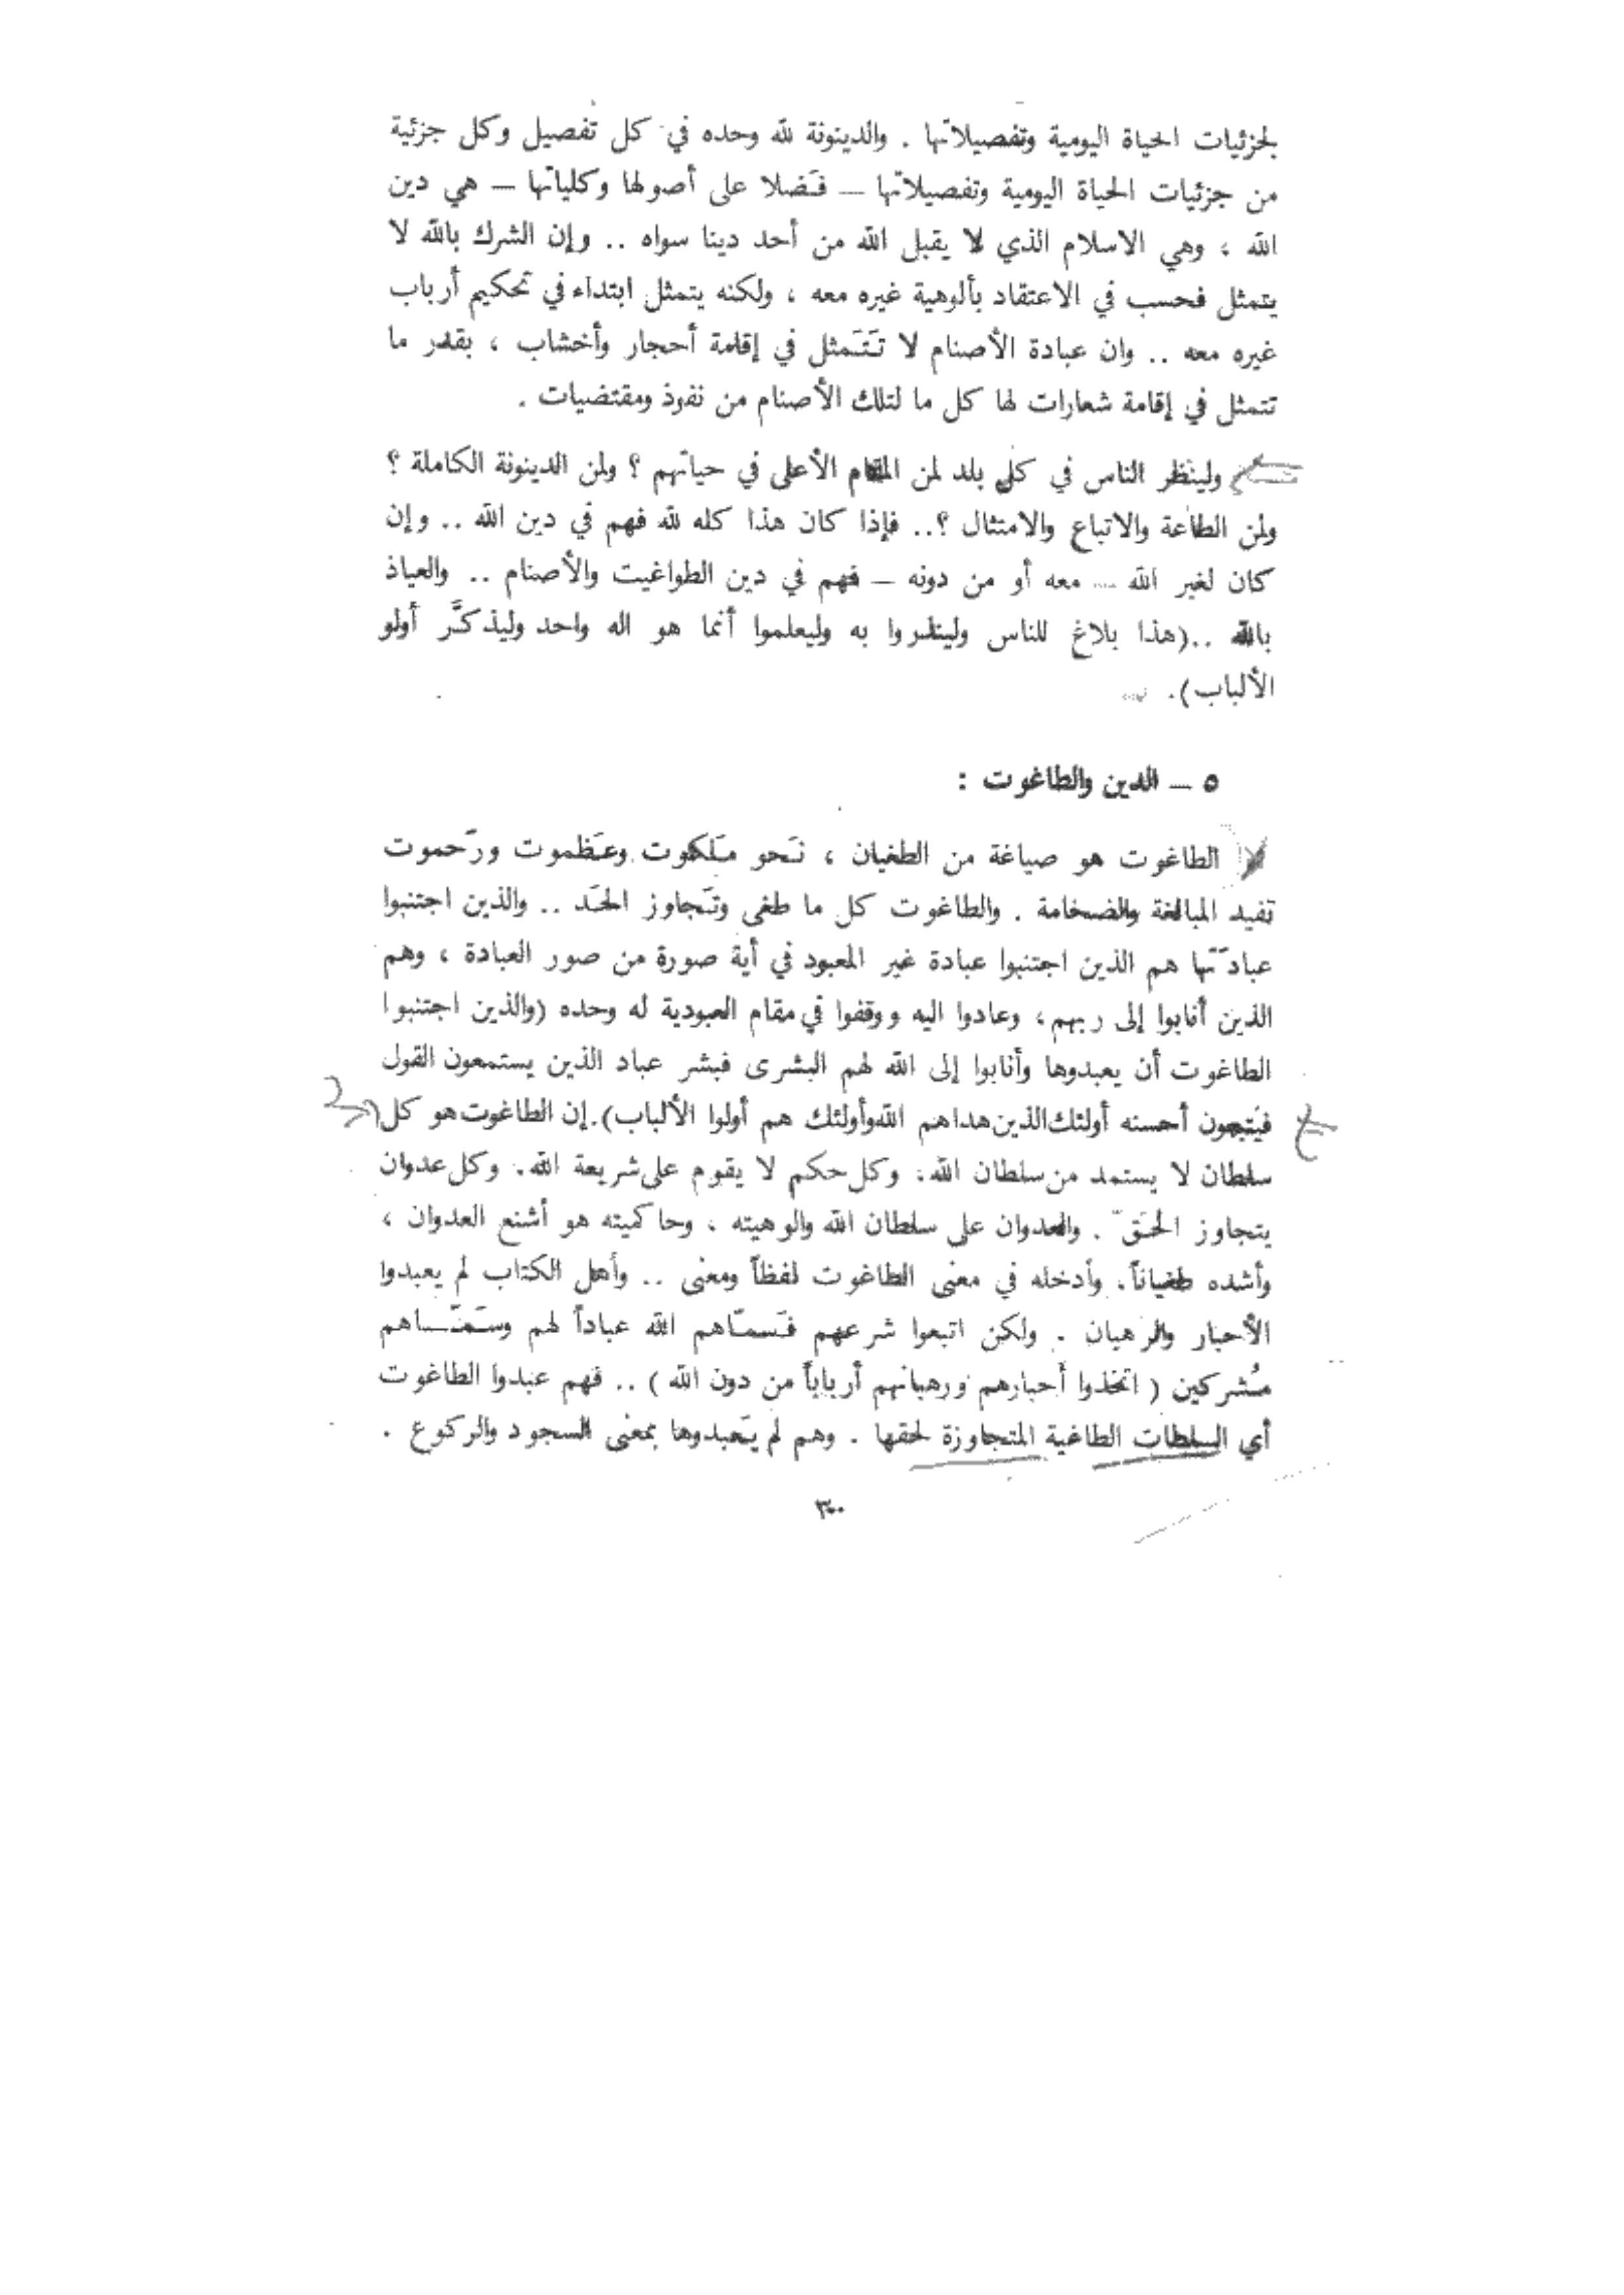 لجزئيات الحياة اليومية وتفصيلاتها . والدينونة لله وحده في كل تفصيل وكل جزئية
من جزئيات الحياة اليومية وتفصيلاتها — فَضلا على أصولها وكلياتها — هي دين
الله ، وهي الاسلام الذي لا يقبل الله من أحد دينا سواه .. وإن الشرك بالله لا
يتمثل فحسب في الاعتقاد بألوهية غيره معه ، ولكنه يتمثل ابتداء في تحكيم أرباب
غيره معه .. وان عبادة الأصنام لا تَتَمثل في إقامة أحجار وأخشاب ، بقدر ما
تتمثل في إقامة شعارات لها كل ما لتلك الأصنام من نفوذ ومقتضيات .
ولينظر الناس في كل بلد لمن المقام الأعلى في حياتهم ؟ ولمن الدينونة الكاملة ؟
ولمن الطاعة والاتباع والامتثال ؟.. فإذا كان هذا كله لله فهم في دين الله .. وإن
كان لغير الله — معه أو من دونه — فهم في دين الطواغيت والأصنام .. والعياذ
بالله ..(هذا بلاغ للناس ولينذروا به وليعلموا أنما هو اله واحد وليذكَّر أولو
الألباب).
٥ — الدين والطاغوت :
الطاغوت هو صياغة من الطغيان ، نَحو مَلَكوت وعَظموت ورَحموت
تفيد المبالغة والضخامة . والطاغوت كل ما طغى وتَجاوز الحَد .. والذين اجتنبوا
عبادَتها هم الذين اجتنبوا عبادة غير المعبود في أية صورة من صور العبادة ، وهم
الذين أنابوا إلى ربهم، وعادوا اليه ووقفوا في مقام العبودية له وحده (والذين اجتنبوا
الطاغوت أن يعبدوها وأنابوا إلى الله لهم البشرى فبشر عباد الذين يستمعون القول
فيَتبعون أحسنه أولئك الذين هداهم الله وأولئك هم أولوا الألباب).إن الطاغوت هو كل
سلطان لا يستمد من سلطان الله، وكل حكم لا يقوم على شريعة الله. وكل عدوان
يتجاوز الحَقّ . والعدوان على سلطان الله والوهيته ، وحاكميته هو أشنع العدوان ،
وأشده طغياناً، وأدخله في معنى الطاغوت لفظاً ومعنى .. وأهل الكتاب لم يعبدوا
الأحبار والرهبان . ولكن اتبعوا شرعهم فَسمّاهم الله عباداً لهم وسَمّـــاهم
مُشركين ( اتخذوا أحبارهم ورهبانهم أرباباً من دون الله ) .. فهم عبدوا الطاغوت
أي السلطات الطاغية المتجاوزة لحقها . وهم لم يَعبدوها بمعنى السجود والركوع .